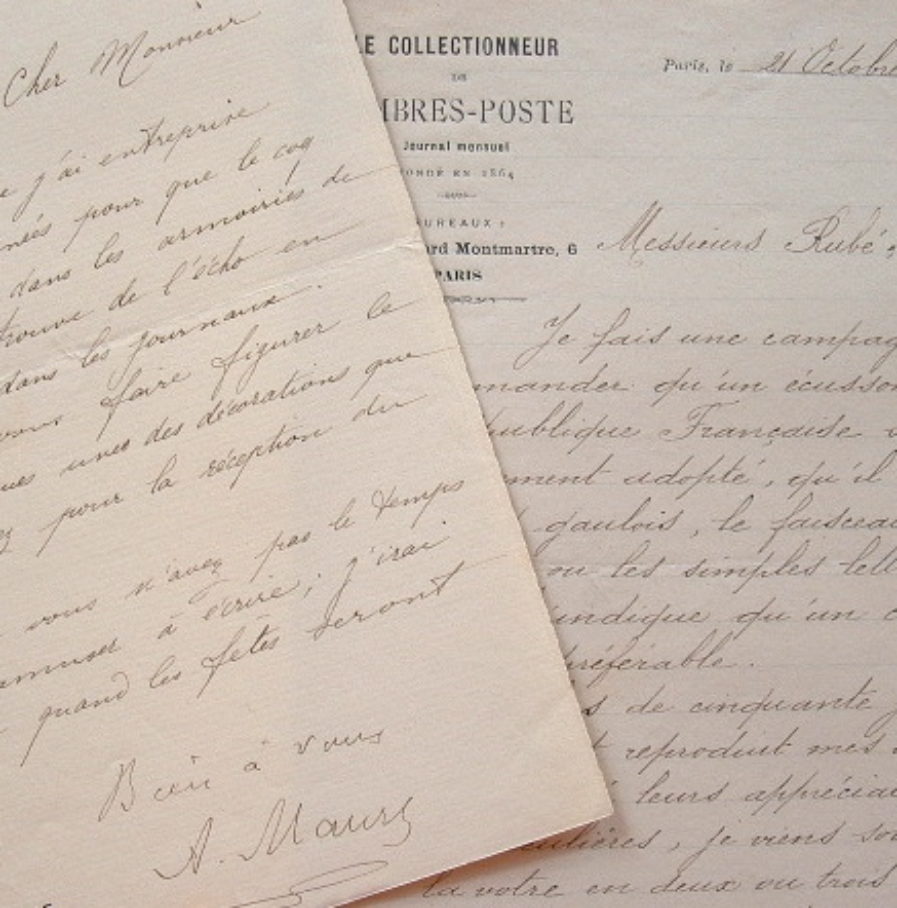 Cher Monsieur
j'ai entreprise
pour que le coq
dans les armoiries de
trouve de l'écho en
dans les journaux.
faire figurer le
unes des décorations que
pour la réception du
vous n'avez pas le temps
à écrire; j'irai
quand les fêtes seront
Bien à vous
A. Maury
LE COLLECTIONNEUR
DE
MBRES-POSTE
Journal mensuel
FONDÉ EN 1864
BUREAUX :
rd Montmartre, 6
PARIS
Paris, le 21 Octobre
Messieurs Rubé,
Je fais une campag
mander qu'un écusson
publique Française
ment adopté, qu'il
gaulois, le faisceau
ou les simples lett
indique qu'un c
préférable.
s de cinquante j
reproduit mes
leurs appréciat
culières, je viens
la votre en deux ou trois